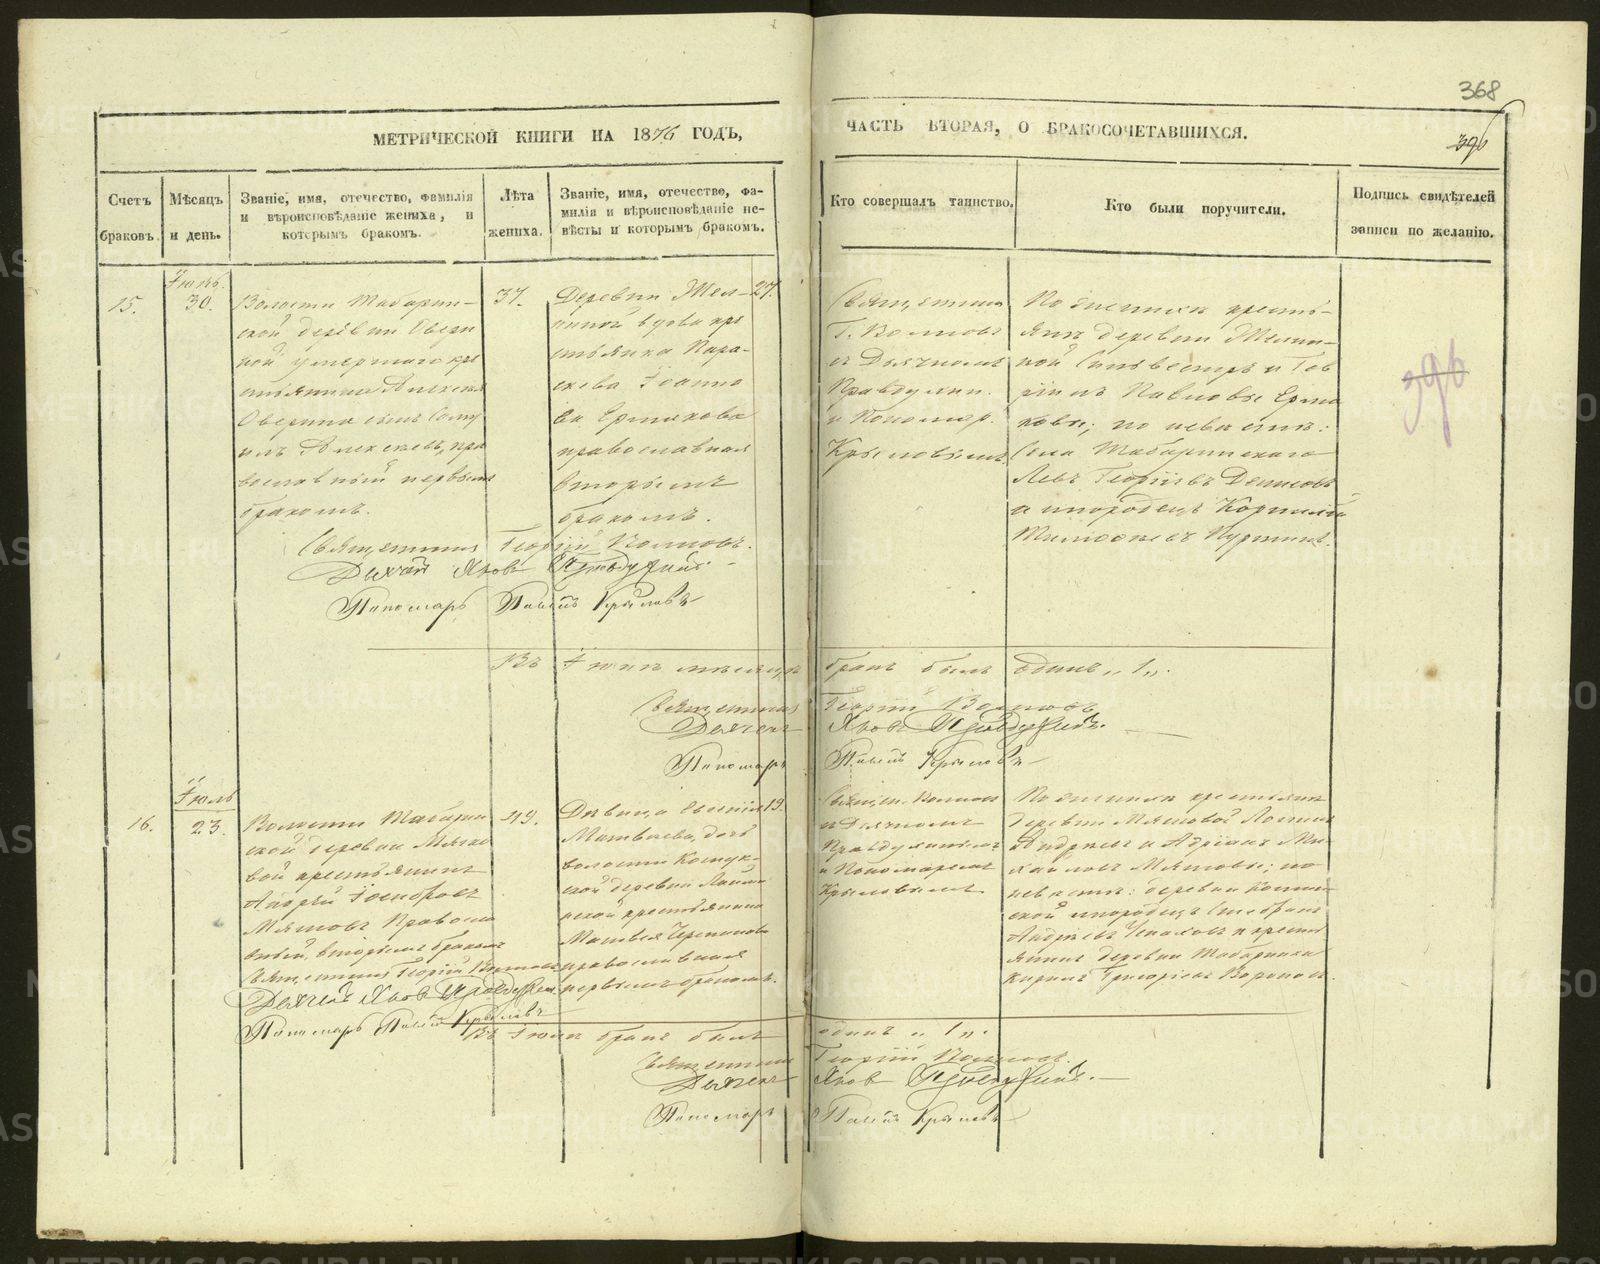 368
МЕТРИЧЕСКОЙ КНИГИ НА 1876 ГОДЪ,
ЧАСТЬ ВТОРАЯ, О БРАКОСОЧЕТАВШИХСЯ.
396
Счетъ браковъ.
Мѣсяцъ и день.
Званіе, имя, отечество, фамилія
и вѣроисповѣданіе жениха, и
которымъ бракомъ.
Лѣта
жениха.
Званіе, имя, отечество, фа-
милія и вѣроисповѣданіе не-
вѣсты и которымъ бракомъ.
Кто совершалъ таинство.
Кто были поручители.
Подпись свидѣтелей
записи по желанію.
15.
30.
Волости Табарин-
ской деревни Овери
ной умершаго кре
стьянина Алексея
Оверина сынъ Саму
илъ Алексеевъ, пра
вославный первымъ
бракомъ.
37.
Деревни Жел-
ниной вдова кре
стьянка Пара-
скева Іоанно
ва Ермакова
православная
вторымъ
бракомъ.
27.
Священник
Г. Волковъ
съ Дьячкомъ
Правдухин.
и Пономар.
Крыловымъ
По женихѣ крестья-
яне деревни
ной Сильвестръ и Гав
ріилъ Павловы Ерма
ковы; по невѣстѣ:
Села Табаринскаго
Левъ Георгіевъ Денисовъ
и инородецъ Корнилій
396
Священникъ Георгій Волковъ.
Дьячекъ Яковъ Правдухинъ.
Пономарь Павелъ Крыловъ
Въ Іюнѣ мѣсяцѣ бракъ былъ одинъ „1„.
Священникъ Георгій Волковъ
Дьячекъ Яковъ Правдухинъ.
Пономарь Павелъ Крыловъ
Іюль
16.
23.
Волости Табарин
ской деревни Мягко
вой крестьянинъ
Андрей Іосифовъ
Мягковъ Правосла
вный, вторымъ бракомъ
49.
Дѣвица Евгенія
Матвѣева, дочь
волости
ской деревни
ской крестьянина
Матвея Черепанова
православная
первымъ бракомъ.
19.
Священ. Волков
съ Дьячкомъ
Правдухинымъ
и Пономаремъ
Крыловымъ
По женихѣ крестьяне
деревни Мягковой
Андреевъ и Адріанъ Ми
хайловъ Мягковы; по
невѣстѣ: деревни
ской инородецъ Стефанъ
Андреевъ
янинъ деревни Табаринки
Кирилъ Григорьевъ
Священникъ Георгій Волковъ
Дьячекъ Яковъ Правдухин
Пономарь Павелъ Крыловъ
Въ Іюлѣ бракъ былъ одинъ „1„.
Священникъ Георгій Волковъ.
Дьячекъ Яковъ Правдухинъ.
Пономарь Павелъ Крыловъ
METRIKI.GASO-URAL.RU